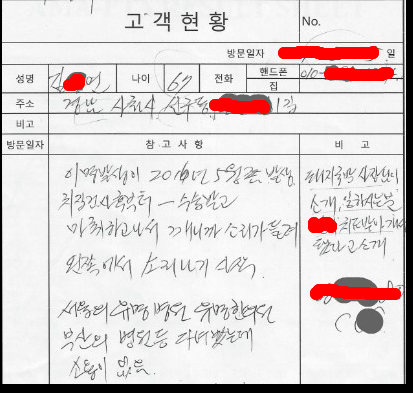 고객현황
No.
방문일자 일
성명 김 연 나이 67 전화 핸드폰 010-
집
주소 경남 사천시 선구동 1길
비고
방문일자 참고사항 비고
이명발생이 2016년 5월로 발생
치질수술부터 - 수술받고
마취하고나서 깨니까 소리가 들려
왼쪽에서 소리나기 시작.
서울의 유명병원 유명한의원
부산의 병원등 다녀봤는데
소용이 없음.
돼지국밥 사장님이
소개,
치료받아
된다고 소개